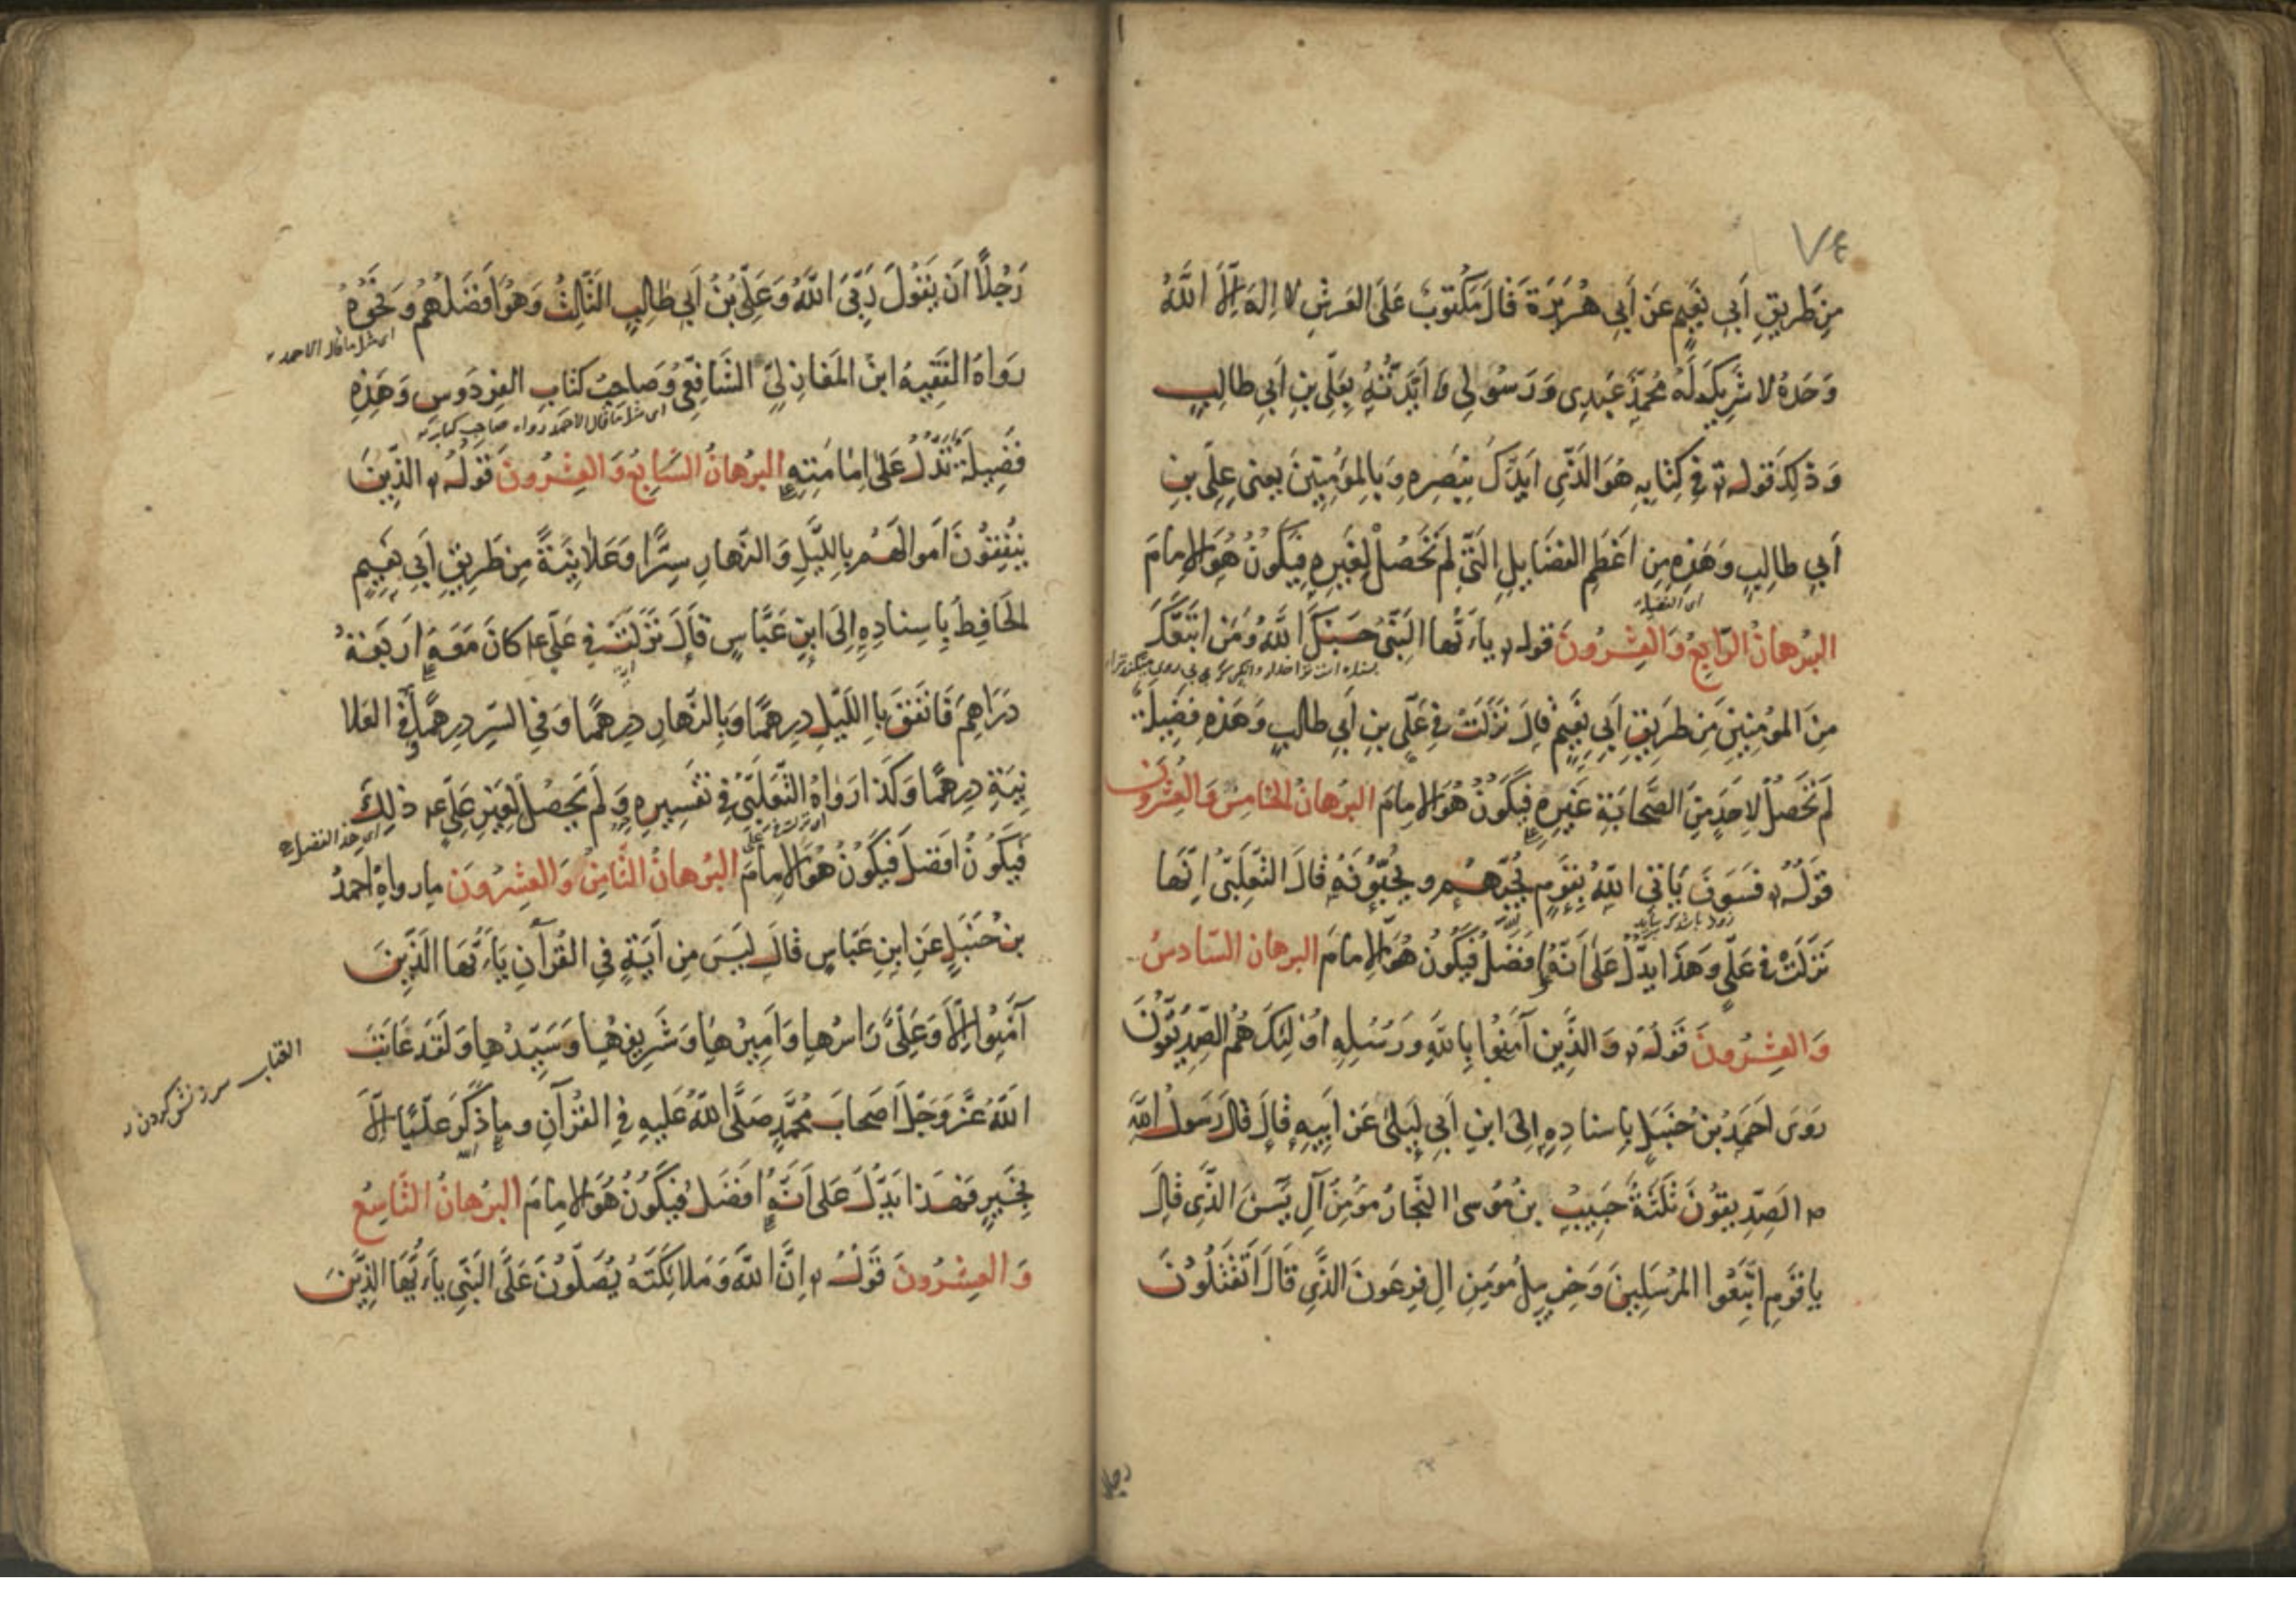 ٧٤
مِن طَرِيقِ أَبِي نُعَيمٍ عَن أَبِي هُرَيرَةَ قَالَ مَكتُوبٌ عَلَى العَرشِ لا اِلهَ اِلَّا اللّهُ
وَحدَهُ لا شَرِيكَ لَهُ مُحَمَّدٌ عَبدِى وَرَسُولِى وَ اَيَّدتُهُ بِعَلِّى بنِ أَبِي طالِبٍ
وَ ذلِكَ قوله تع فِي كِتابِهِ هُوَ الَّذِى اَيَّدَكَ بِنَصرِهِ وَبِالمُؤمِنِينَ يعنى عِلَّى بنِ
أَبِي طالِبٍ وَهَذِهِ مِن اَعظَمِ الفَضَايِلِ الَّتِي لَم تَحصُلْ لِغَيرِهِ فَيَكُونُ هُوَ الاِمامَ
اى الفضيلة
البُرهانُ الرّابِعُ وَالعِشرُونَ قوله تع ياءَيُّها النَّبِيُّ حَسبُكَ اللَّهُ وَمَن اتَّبَعَكَ
مِنَ المُؤمِنِينَ مِن طَرِيقِ أَبِي نُعَيمٍ قالَ نَزَلَتْ فِي عَلِّى بنِ أَبِي طالِبٍ وَهَذِهِ فَضِيلَةٌ
لَم تَحصُلْ لِاَحَدٍ مِنَ الصَّحابَةِ غَيرِهِ فَيَكُونُ هُوَ الاِمامَ البُرهانُ الخامِسُ وَالعِشرُونَ
قَولُهُ تع فَسَوفَ يَاتِي اللّهُ بِقَومٍ يُحِبُّهُم وَ يُحِبُّونَهُ قالَ الثَّعلَبِيُّ اِنَّها
نَزَلَتْ فِي عَلِّىٍ وَهَذَا يَدُلُّ عَلى اَنَّهُ اَفضَلُ فَيَكُونُ هُوَ الاِمامَ البرهان السّادسُ
وَالعِشرُونَ قَولُهُ تع وَالَّذِينَ آمَنُوا بِاللّهِ وَرُسُلِهِ اُولئِكَ هُمُ الصِّدِّيقُونَ
رَوَى اَحمَدُ بنُ حَنبَلٍ بِاسنادِهِ اِلى ابنِ أَبِي لَيلى عَن اَبِيهِ قالَ قالَ رَسُولُ اللّهِ
ص الصِّدِّيقُونَ ثَلَثَةٌ حَبِيبُ بنُ مُوسى النَّجّارُ مُؤمِنُ آلِ يسَ الَّذِي قالَ
يا قَومِ اتَّبِعُوا المُرسَلِينَ وَحِزبِيلُ مُومِنِ الِ فِرعَونَ الَّذِي قَالَ اَتَقتُلُونَ
رجلا
رَجُلًا اَن يَقُولَ رَبِّىَ اللَّهُ وَعَلِىُّ بنُ أَبِي طالِبٍ الثّالِثُ وَهُوَ اَفضَلُهُم وَ نَحوُهُ
اى مثل ما قال الاحمد
رَوَاهُ الفَقِيهُ ابنُ المَغازِلِيِّ الشّافِعِيُّ وَصاحِبُ كتابِ الفِردَوسِ وَهَذِهِ
اى مثل ما قال الاحمد رواه صاحب كتاب
فَضِيلَةٌ تَدُلُّ عَلى اِمامَتِهِ البُرهانُ السّابِعُ وَالعِشرُونَ قَولُهُ تع الَّذِينَ
يُنفِقُونَ اَموالَهُم بِاللَّيلِ وَالنَّهارِ سِرًّا وَعَلانِيَةً مِن طَرِيقِ أَبِي نُعَيمٍ
الحَافِظِ بِاسنادِهِ اِلَى ابنِ عَبَّاسٍ قالَ نَزَلَتْ فِي عَلِّى ع كانَ مَعَهُ اَربَعَةُ
دَرَاهِمَ فَانفَقَ بِاللَّيلِ دِرهَمًا وَبِالنَّهارِ دِرهَمًا وَفِي السِّرِ دِرهَمًا وَفِي العَلا
نِيَةِ دِرهَمًا وَكَذا رَوَاهُ الثَّعلَبِيُّ فِي تَفسِيرِهِ وَلَم يَحصُلْ لِغَيرِ عَلِّى ع ذلِكَ
اى هذ الفضل
فَيَكُونُ اَفضَلَ فَيَكُونُ هُوَ الاِمامَ البُرهانُ الثّامِنُ وَالعِشرُونَ ما رواهُ اَحمَدُ
بنُ حَنبَلٍ عَنِ ابنِ عَبّاسٍ قالَ لَيسَ مِن آيَةٍ فِي القُرآنِ يَاءَيُّهَا الَّذِينَ
آمَنُوا اِلّا وَعَلِىٌّ رَاسُها وَاَمِيرُها وَشَرِيفُها وَسَيِّدُها وَلَقَد عَاتَبَ
العتاب سرزنش كردن
اللّهُ عَزَّ وَجَلَّ اَصحابَ مُحَمَّدٍ صَلَّى اللّهُ عَلَيهِ فِي القُرآنِ وما ذَكَرَ عَلِيًّا اِلّا
بِخَيرٍ فَهَذا يَدُلُّ عَلى اَنَّهُ اَفضَلُ فَيَكُونُ هُوَ الاِمامَ البُرهانُ التّاسِعُ
وَالعِشرُونَ قَولُهُ تع اِنَّ اللّهَ وَمَلائِكَتَهُ يُصَلُّونَ عَلَى النَّبِي ياءَيُّهَا الَّذِينَ